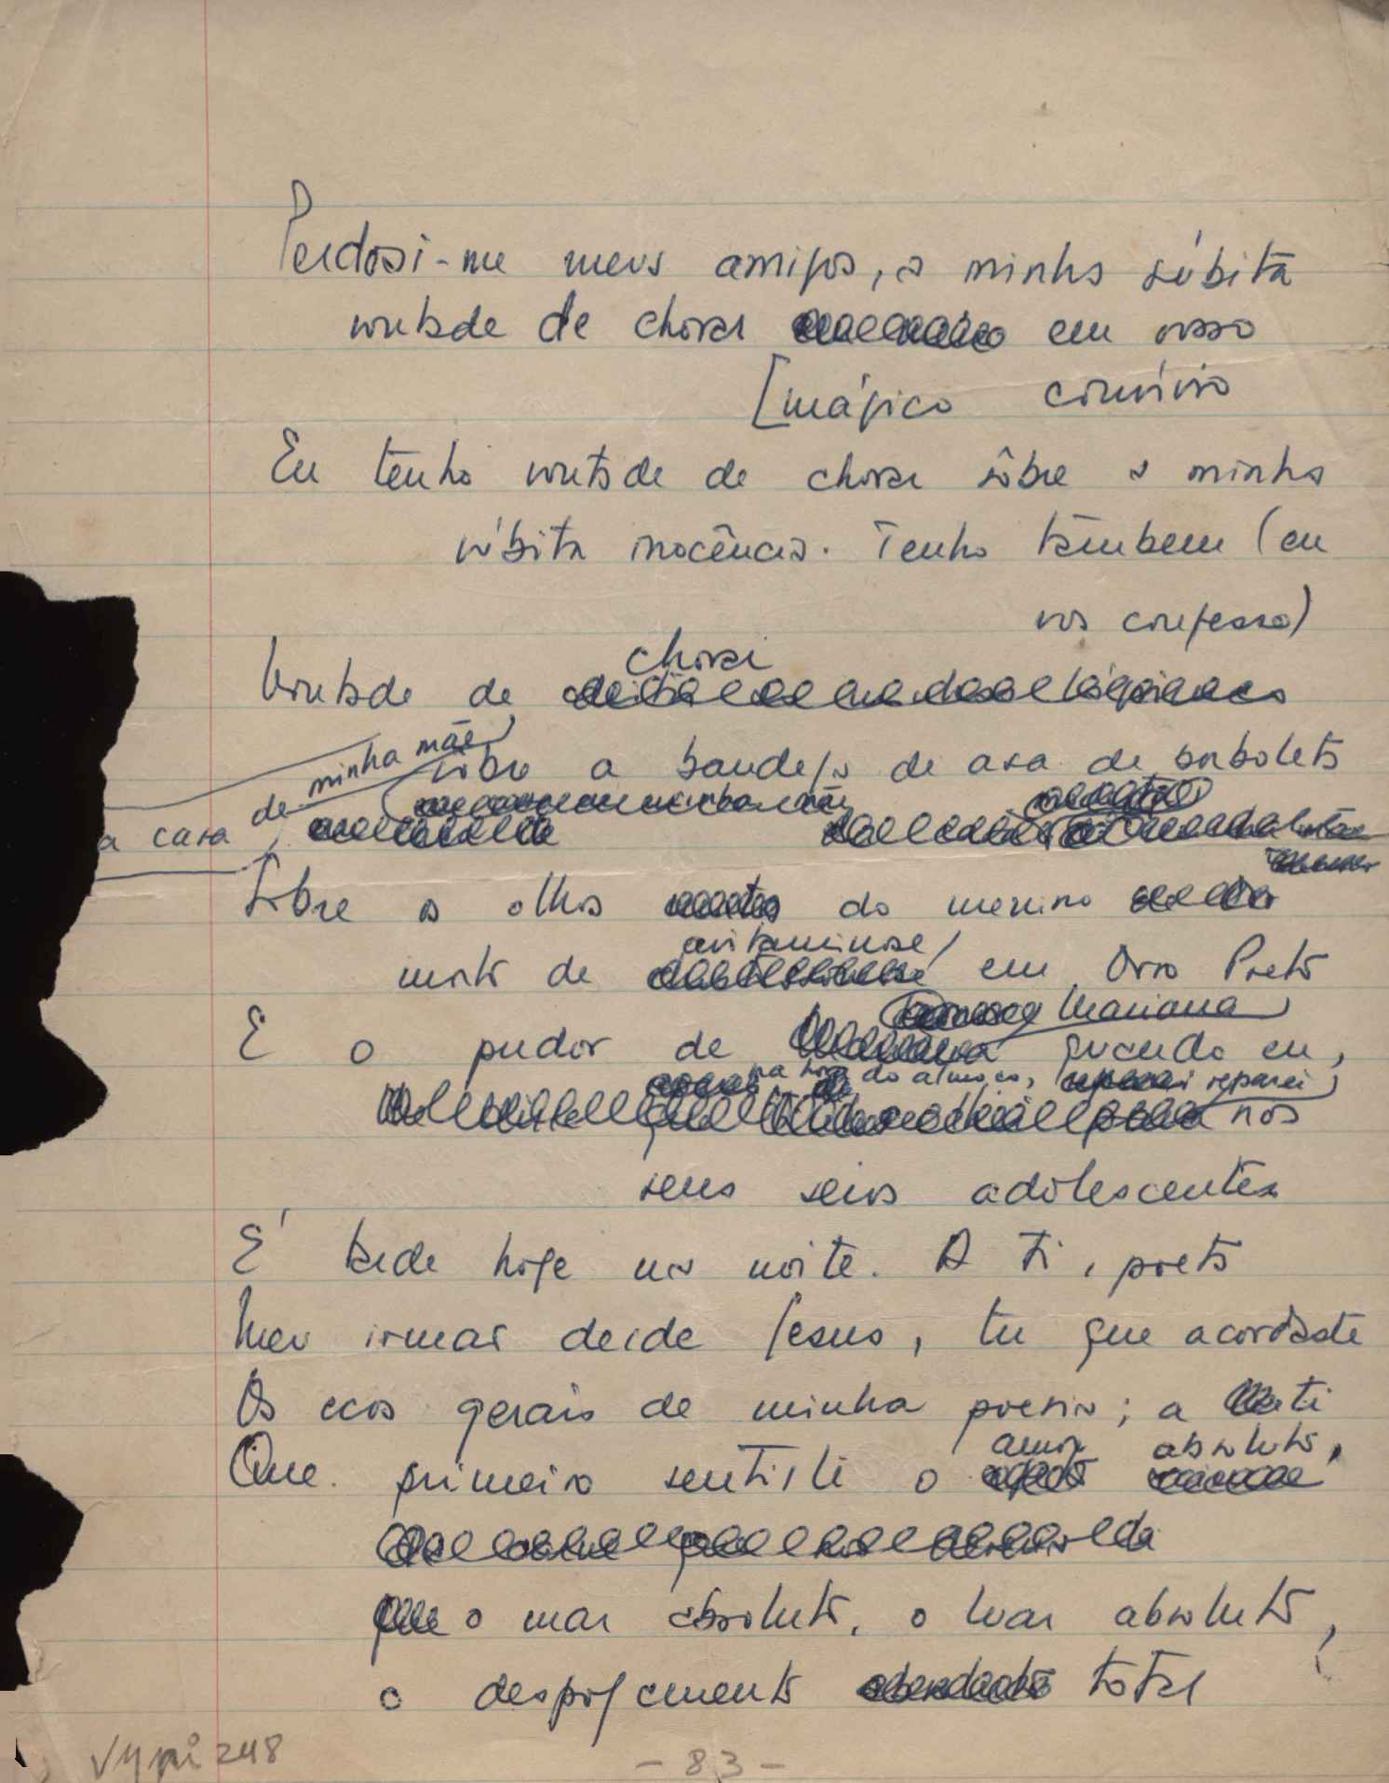 Perdoai-me meus amigos, a minha súbita
vontade de chorar em vosso
[mágico convívio
Eu tenho vontade de chorar sôbre a minha
súbita inocência. Tenho também (eu
vos confesso)
chorar
Vontade de
sobre a bandeja de asa de borboleta
de minha mãe
a casa
Sôbre os olhos do menino
avitaminose
morto de em Ouro Preto
Mariana
E o pudor de quando eu,
na hora do almoço, reparei
nos
seus seios adolescentes
É tarde hoje na noite. A ti, poeta
Meu irmão desde Jesus, tu que acordaste
Os ecos gerais de minha poesia; a ti
amor absoluto,
Que primeiro sentiste o
o mar absoluto, o luar absoluto,
o despojamento total
VM pi 248
- 83 -